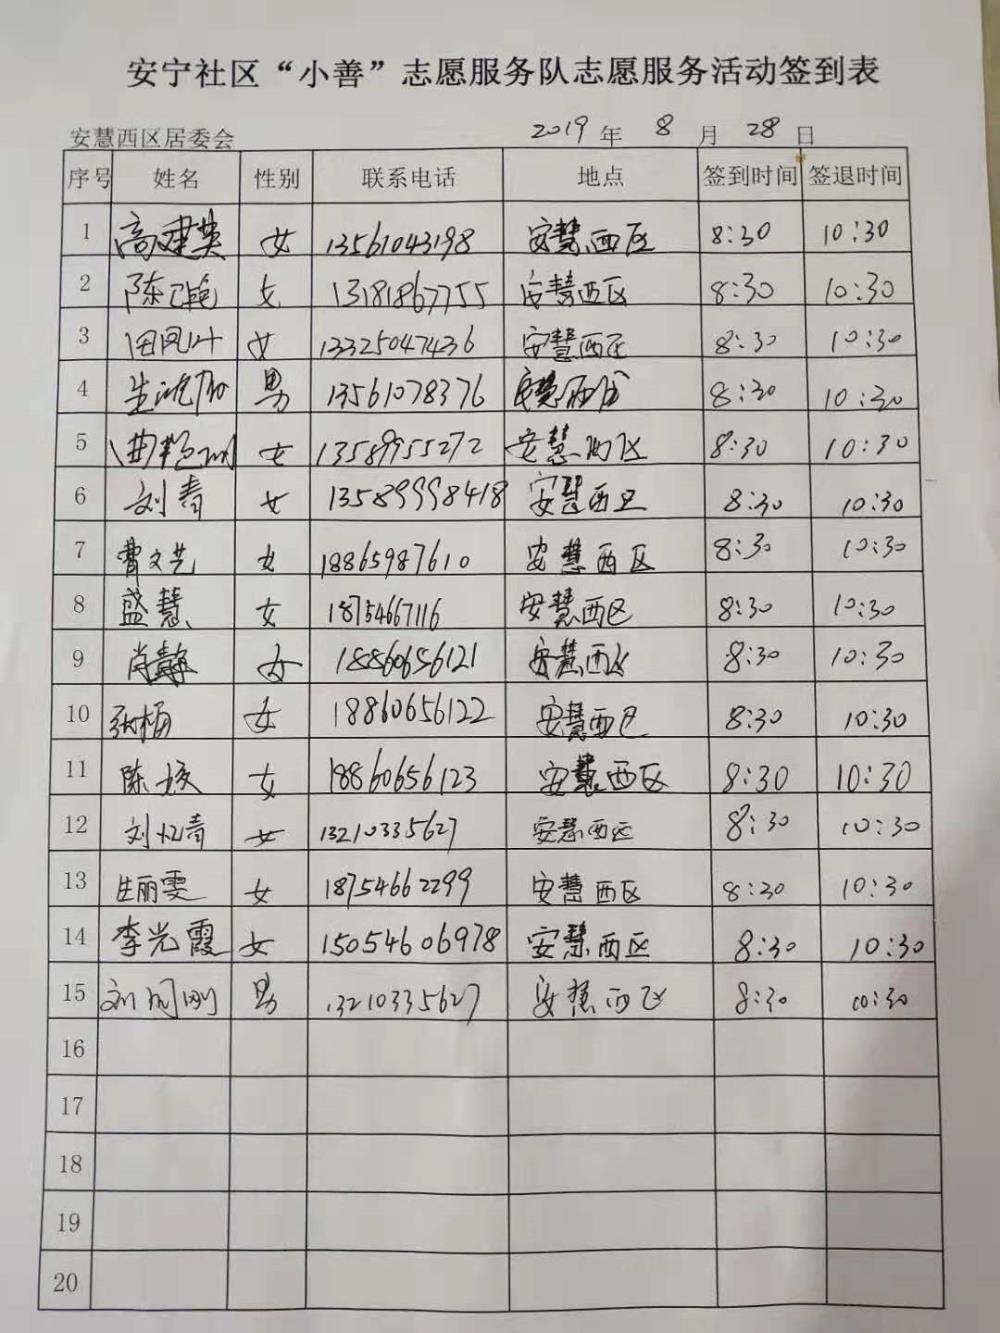 安宁社区“小善”志愿服务队志愿服务活动签到表
安慧西区居委会 2019 年 8 月 28 日
序号 姓名 性别 联系电话 地点 签到时间 签退时间
1 高建英 女 13561043198 安慧西区 8:30 10:30
2 陈 女 13181867755 安慧西区 8:30 10:30
3 田凤叶 女 13325047436 安慧西区 8:30 10:30
4 男 13561078376 安慧西区 8:30 10:30
5 曲艳 女 13589955272 安慧西区 8:30 10:30
6 刘青 女 13589998418 安慧西区 8:30 10:30
7 曹文艺 女 18865987610 安慧西区 8:30 10:30
8 盛慧 女 18754667116 安慧西区 8:30 10:30
9 肖静 女 18860656121 安慧西区 8:30 10:30
10 张梅 女 18860656122 安慧西区 8:30 10:30
11 陈姣 女 18860656123 安慧西区 8:30 10:30
12 刘忆青 女 13210335627 安慧西区 8:30 10:30
13 生丽雯 女 18754662299 安慧西区 8:30 10:30
14 李光霞 女 15054606978 安慧西区 8:30 10:30
15 刘同刚 男 13210335627 安慧西区 8:30 10:30
16
17
18
19
20